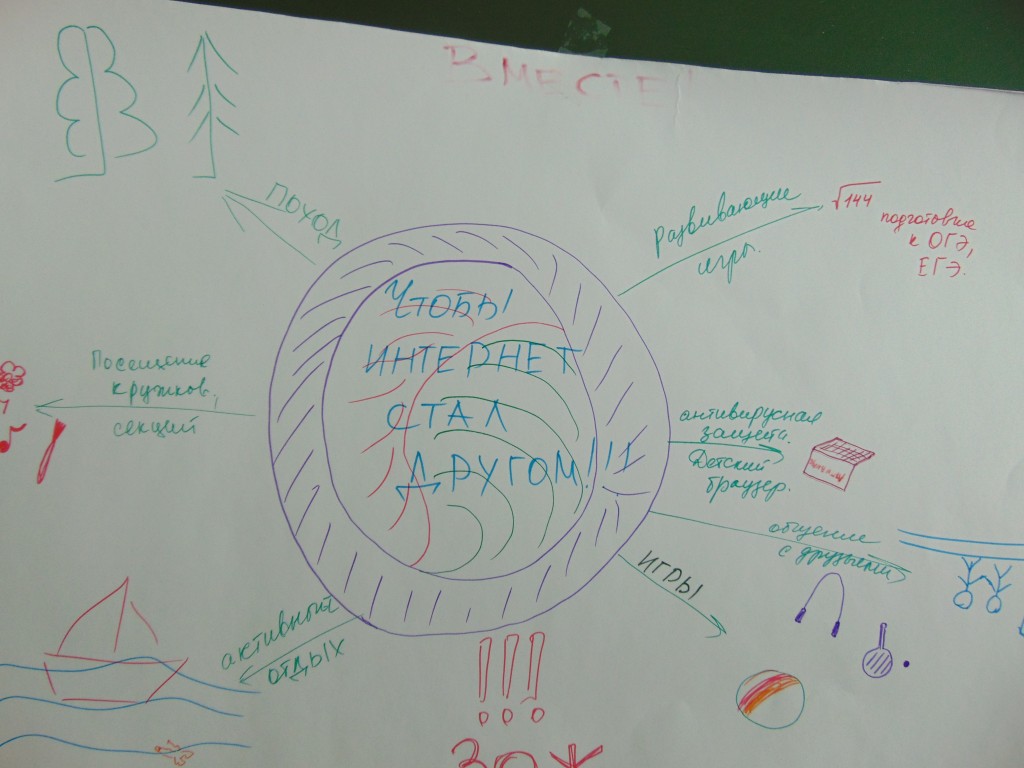 ВМЕСТЕ!
ПОХОД
Развивающие
игры.
√144
подготовка
к ОГЭ,
ЕГЭ.
ЧТОБЫ
ИНТЕРНЕТ
СТАЛ
ДРУГОМ!!!
Посещение
кружков,
секций
антивирусная
защита.
Детский
браузер.
общение
с друзьями
ИГРЫ
активный
отдых
!!!
ЗОЖ